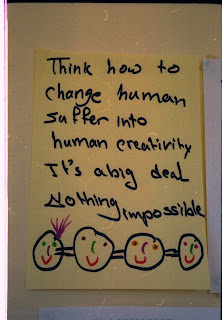 Think how to
change human
suffer into
human creativity
It's a big deal
Nothing impossible